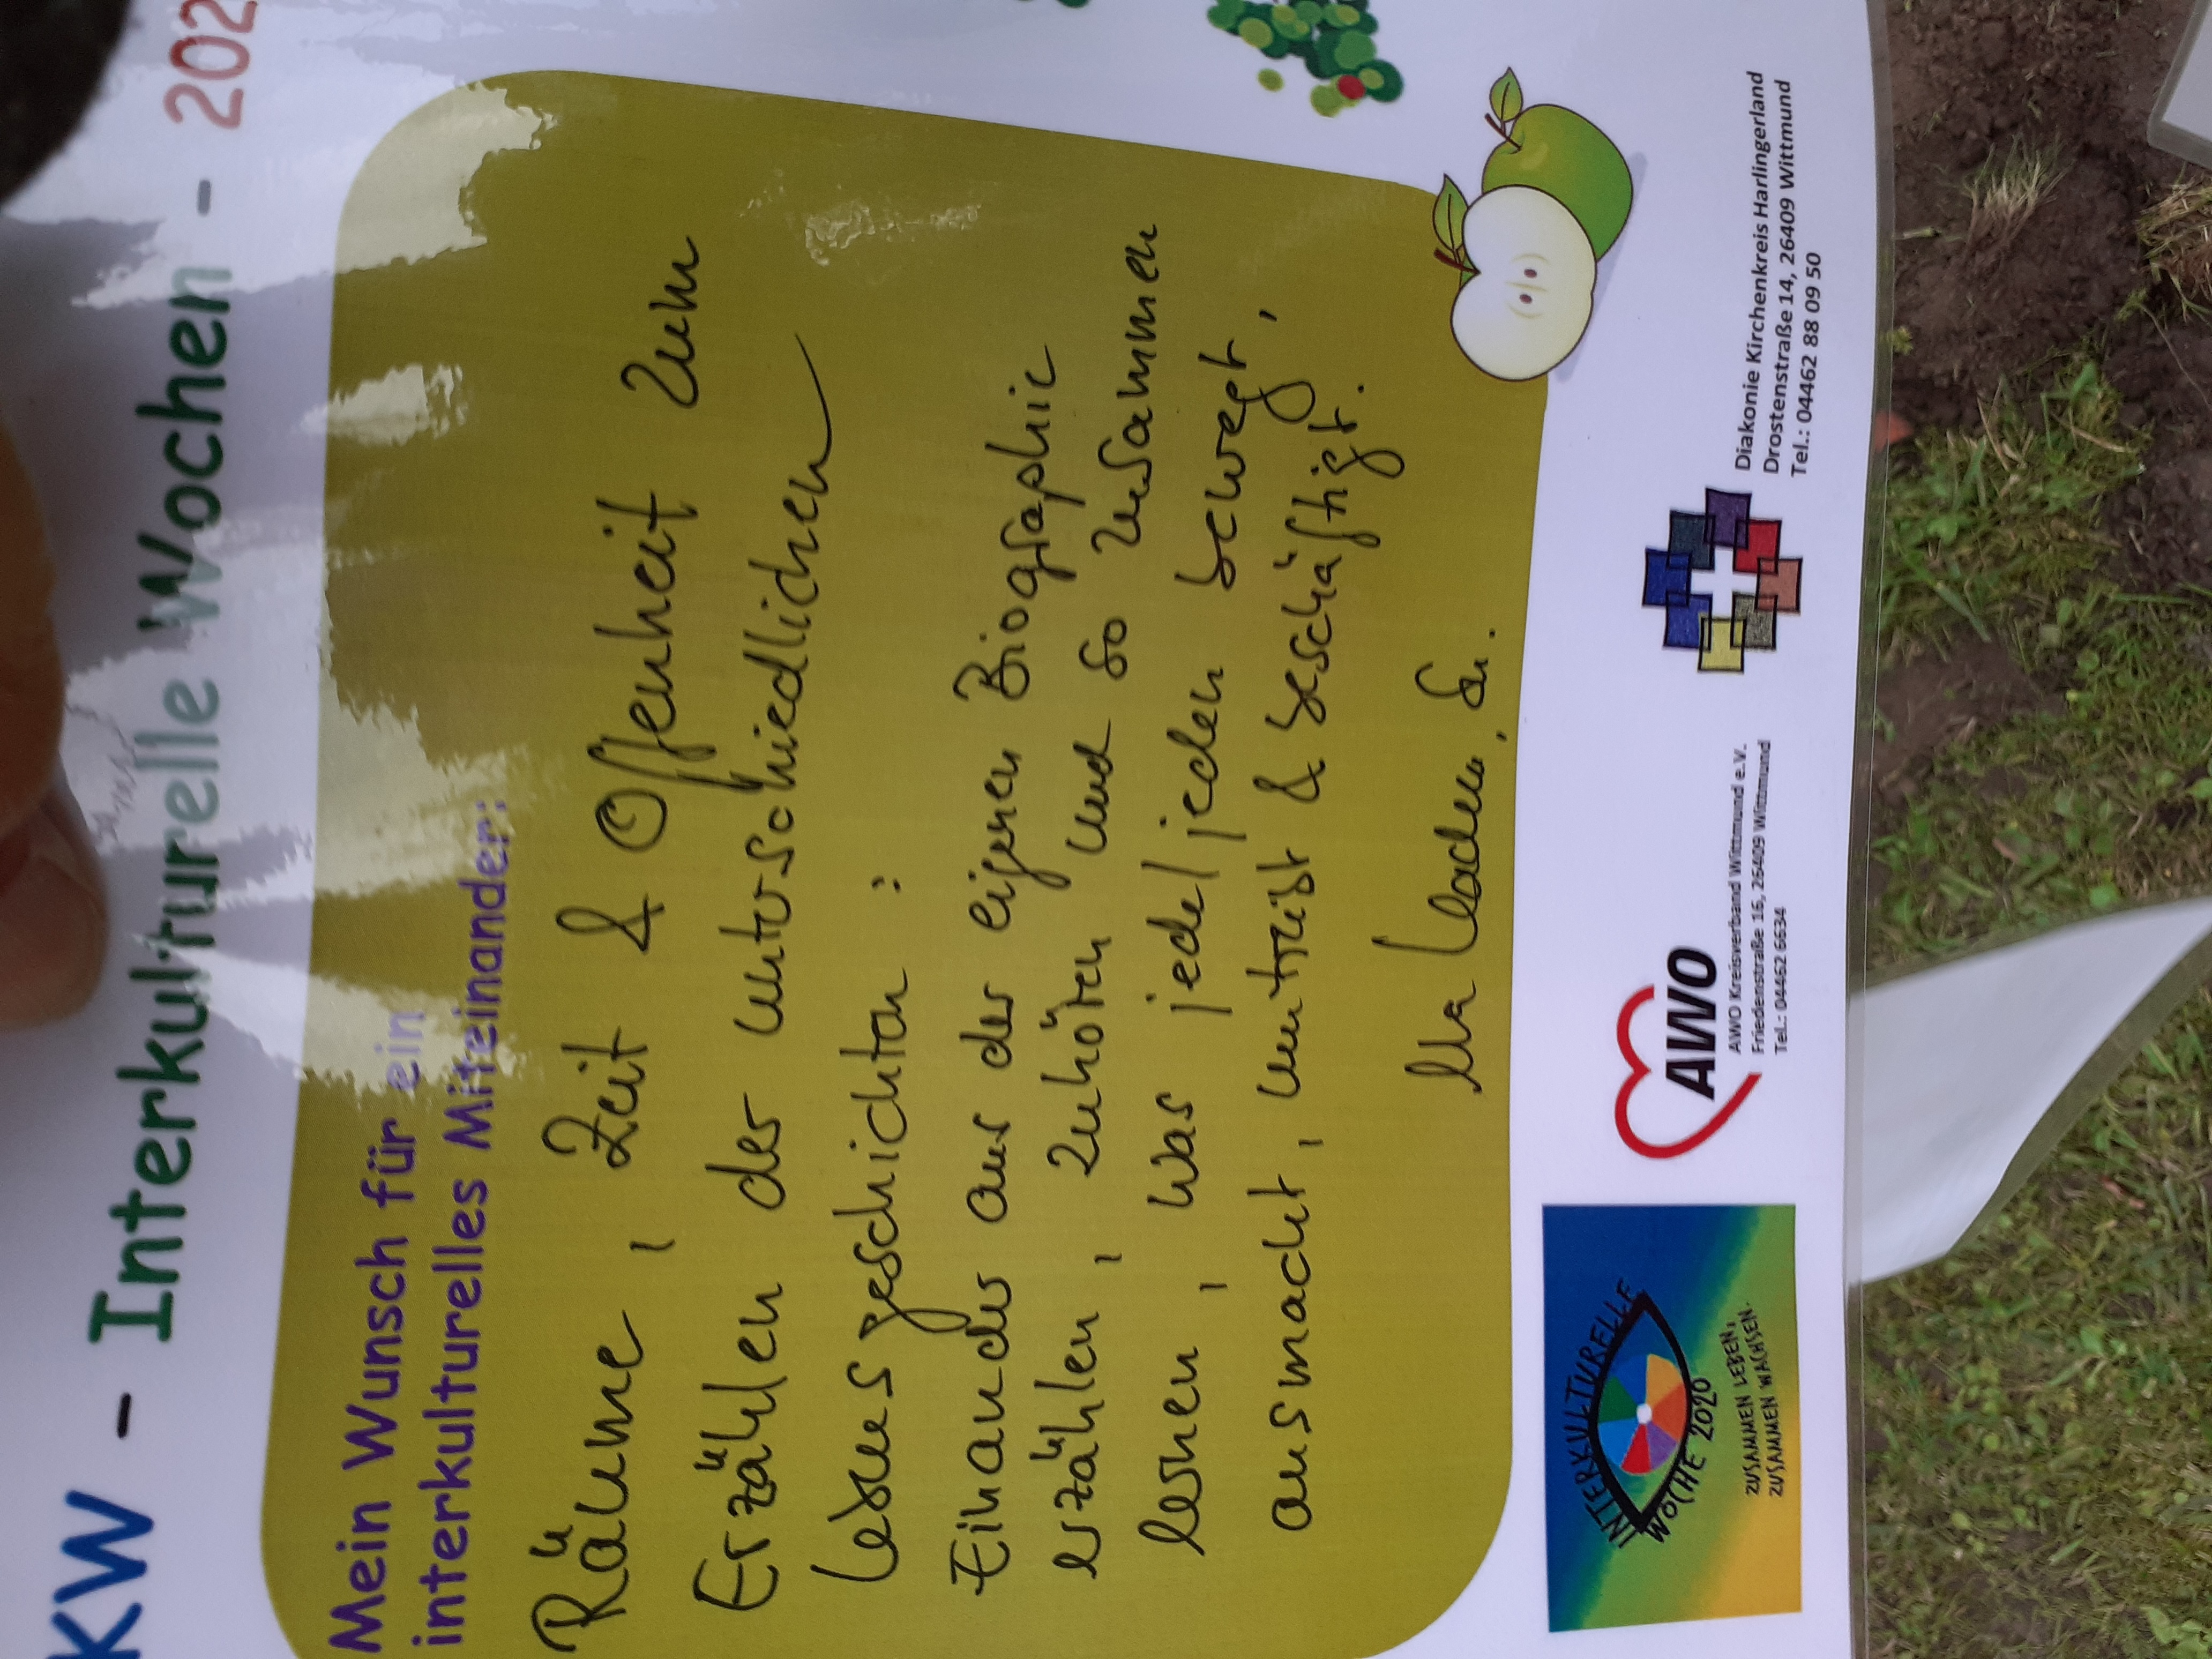 KW - Interkulturelle Wochen - 202
Mein Wunsch für ein
interkulturelles Miteinander:
Räume, Zeit & Offenheit zum
Erzählen der unterschiedlichen
Lebensgeschichten:
Einander aus der eigenen Biographie
erzählen, zuhören und so zusammen
lernen, was jede/jeden bewegt,
ausmacht, umtreibt & beschäftigt.
INTERKULTURELLE
WOCHE 2020
ZUSAMMEN LEBEN,
ZUSAMMEN WACHSEN.
AWO
AWO Kreisverband Wittmund e.V.
Friedenstraße 16, 26409 Wittmund
Tel.: 04462 6634
Diakonie Kirchenkreis Harlingerland
Drostenstraße 14, 26409 Wittmund
Tel.: 04462 88 09 50